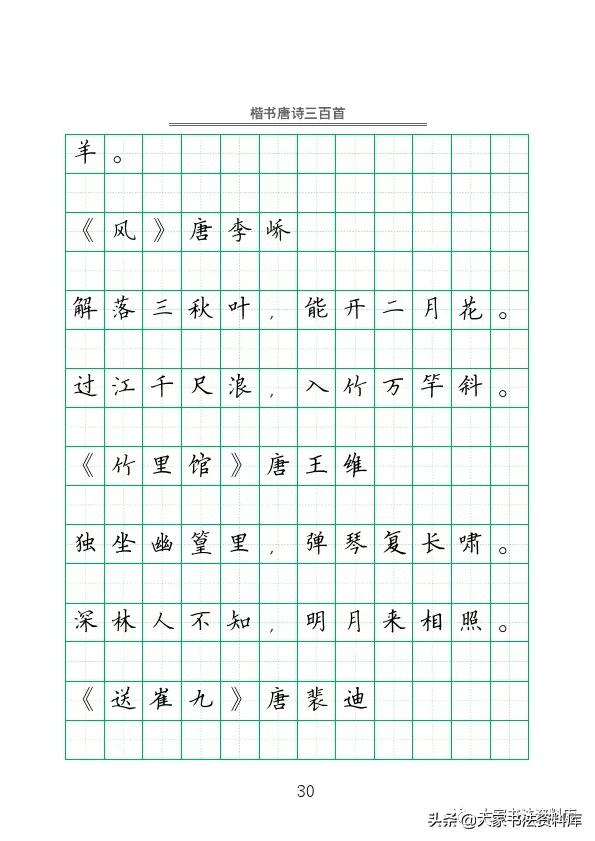 楷书唐诗三百首
羊。
《风》唐李峤
解落三秋叶,能开二月花。
过江千尺浪,入竹万竿斜。
《竹里馆》唐王维
独坐幽篁里,弹琴复长啸。
深林人不知,明月来相照。
《送崔九》唐裴迪
30
大家书法资料库
头条@大家书法资料库